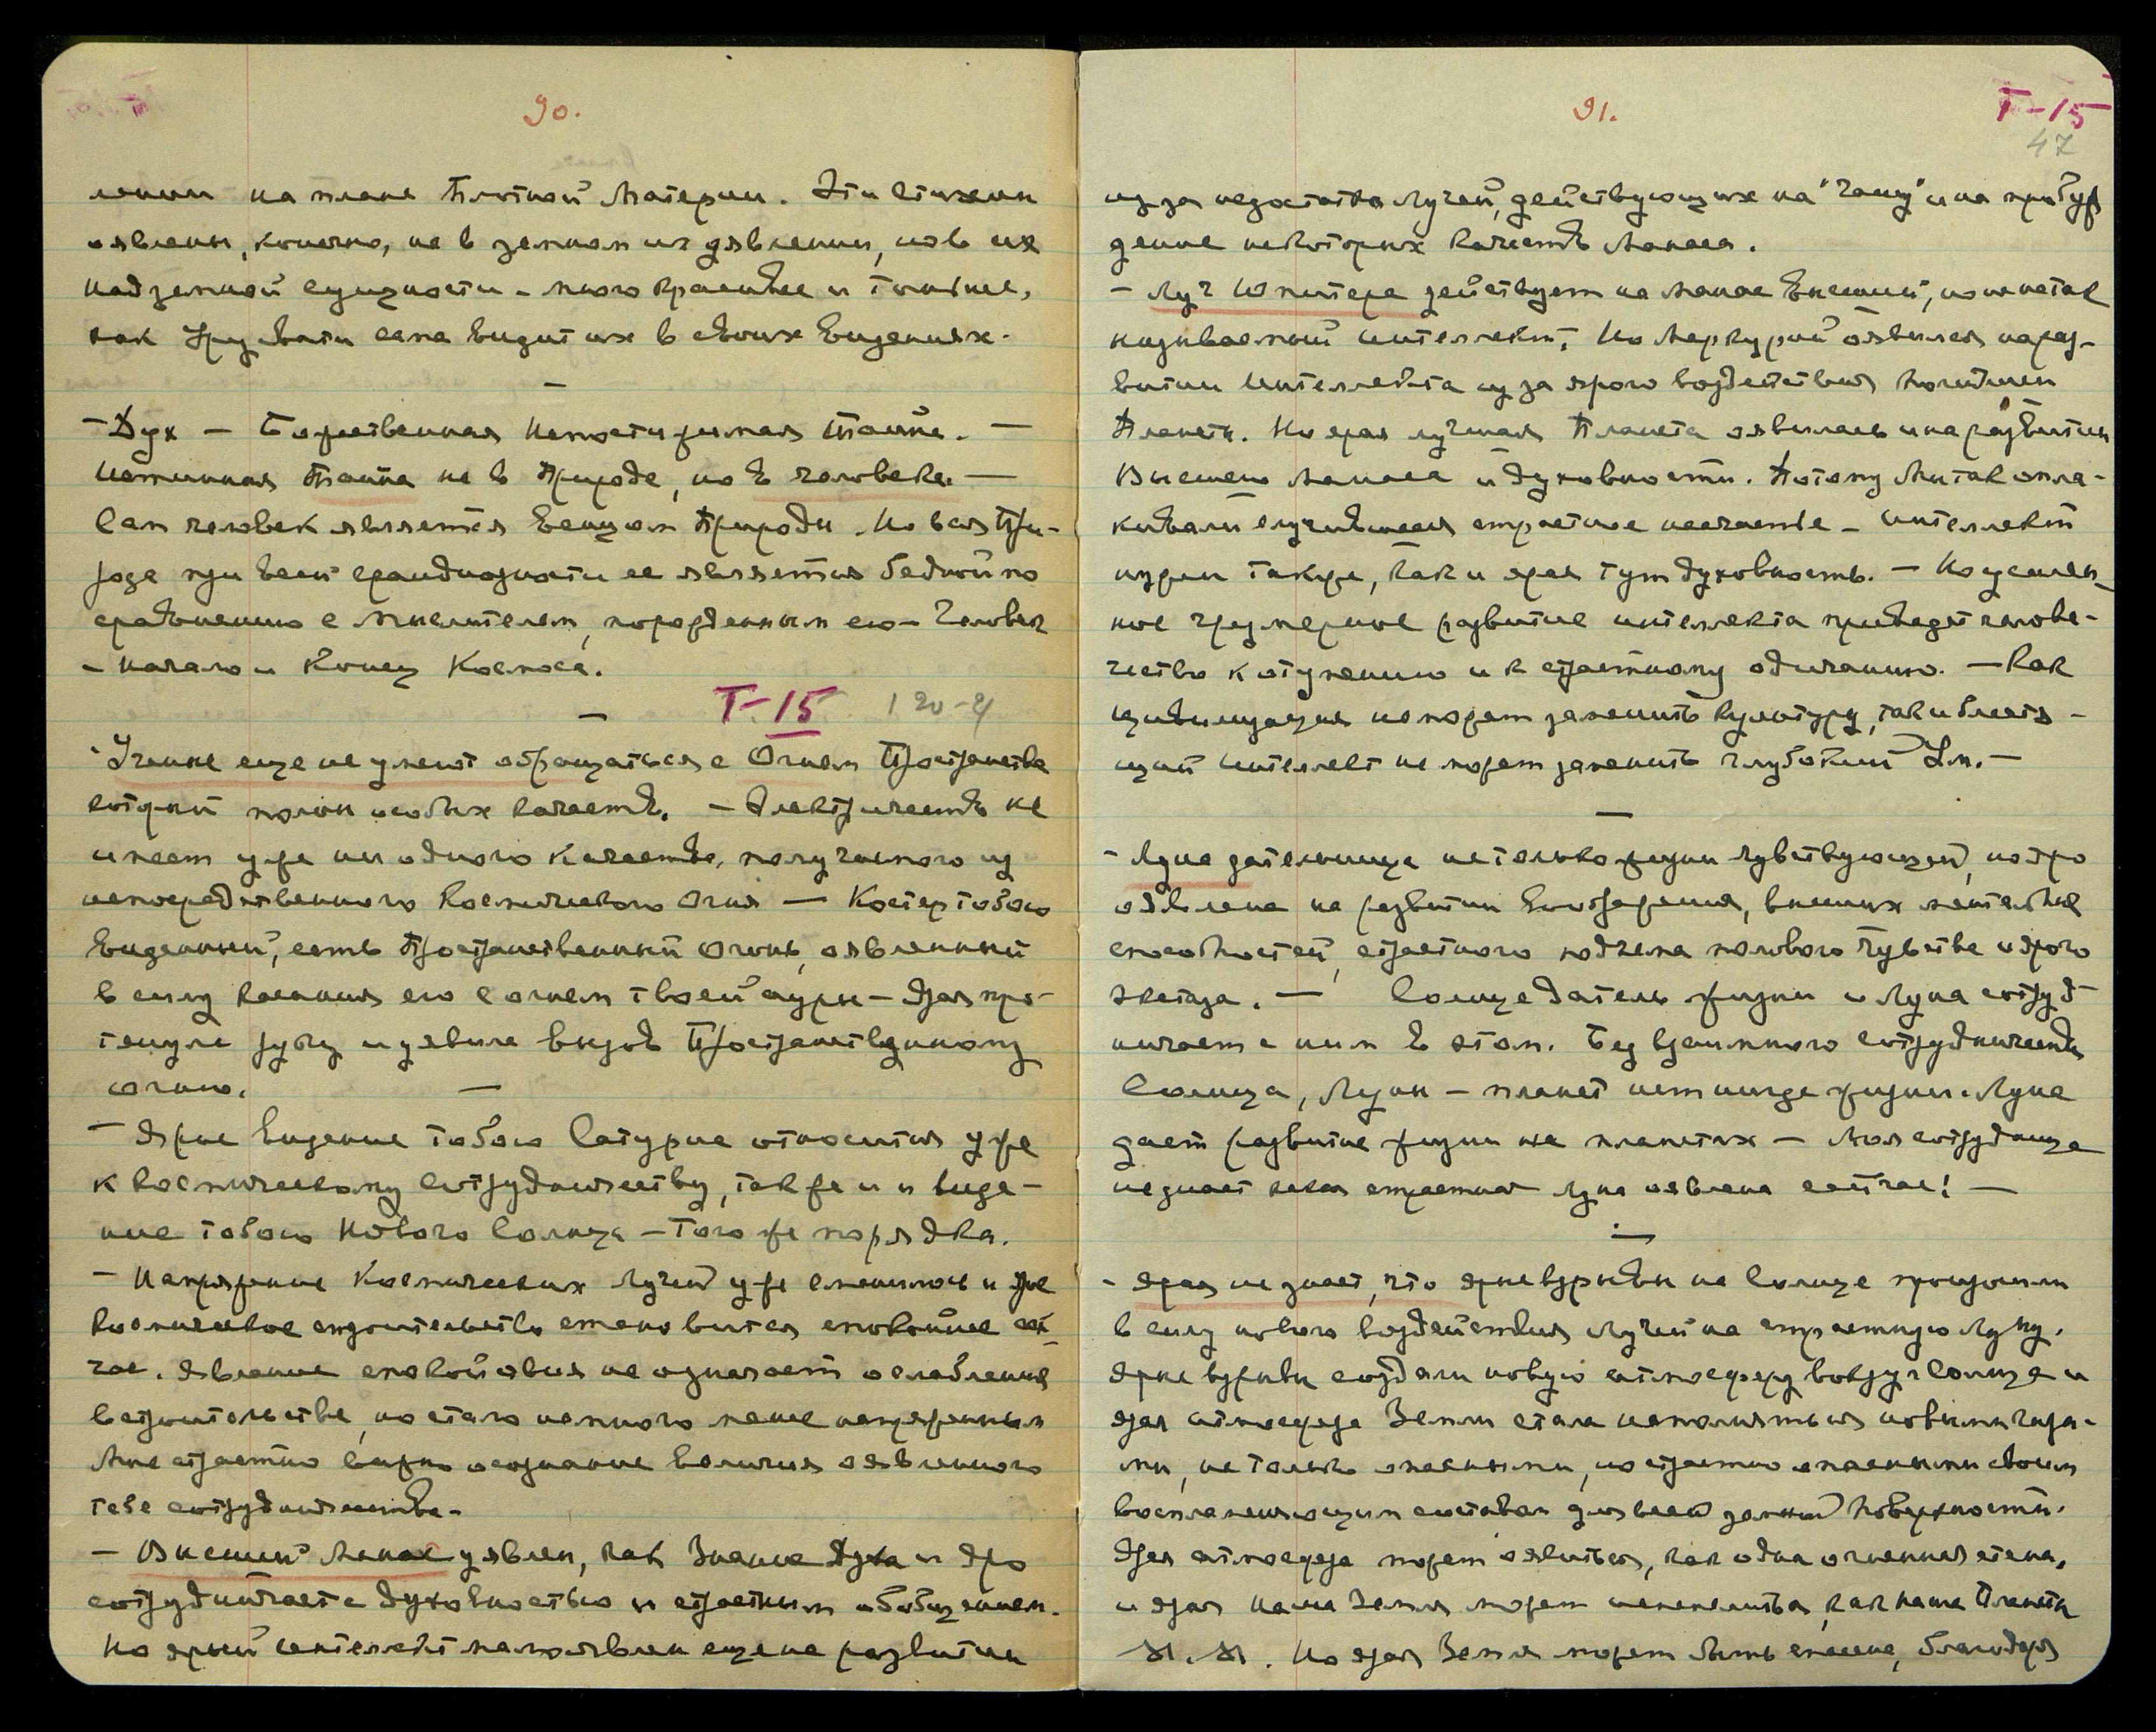 90.
лении на плане Плотной Материи. Эти Стихии
оявлены, конечно, не в земном их уявлении, но в их
надземной сущности – много красивее и тоньше,
как Урусвати сама видит их в своих Видениях.
–
– Дух – Божественная Непостижимая Тайна. –
Истинная Тайна не в Природе, но в человеке. –
Сам человек является Венцом Природы. Но вся При-
рода при всей грандиозности ее является бедной по
сравнению с Мыслителем, порожденным ею – Человек
– начало и Конец Космоса.
–
Т-15
– Ученые еще не умеют обращаться с Огнем Пространства
который полон особых качеств. – Электричество не
имеет уже ни одного качества, полученного из
непосредственного Космического Огня – Костер тобою
Виденный, есть Пространственный Огонь, оявленный
в силу касания его с огнем твоей ауры – Ярая про-
тянула руку и уявила вызов Пространственному
огню.
–
– Ярое Видение тобою Сатурна относится уже
к космическому сотрудничеству, также и и виде-
ние тобою Нового Солнца – того же порядка.
– Напряжение Космических Лучей уже сменилось и ярое
космическое строительство становится спокойнее сей-
час. Явление спокойствия не означает ослабления
в строительстве, но стало немного менее напряженным
Мне страстно важно осознание величия оявленного
тебе сотрудничества.
– Высший Манас уявлен, как Знание Духа и яро
сотрудничает с духовностью и страстным обобщением.
Но ярый интеллект мало явлен еще на развитии
91.
Т-15
47
из за недостатка Лучей, действующих на "Чашу" и на пробуж
дение некоторых качеств Манаса.
– Луч Юпитера действует на Манас Высший, но не так
называемый интеллект, Но Меркурий оявился на раз-
витии Интеллекта из за ярого воздействия
Планеты. Но ярая лучшая Планета оявилась и на развитии
Высшего Манаса и духовности. Потому Мы так опла-
кивали случившееся страстное несчастье – интеллект
нужен также, как и ярая тут духовность. – Но усилен-
ное чрезмерное развитие интеллекта приведет челове-
чество к отупению и к страстному одичанию. – Как
цивилизация не может заменить культуру, так и блестя-
щий интеллект не может заменить глубокий Ум. –
–
– Луна дательница не только жизни чувствующей, но яро
оявлена на развитии воображения, высших мыслительных
способностей, страстного подъема полового чувства и ярого
экстаза. – Солнце датель жизни и Луна сотруд-
ничает с ним в этом. Без взаимного сотрудничества
Солнца, Луны – планет нет нигде жизни. Луна
дает развитие жизни на планетах – Моя сотрудница
не знает какая страстная Луна оявлена сейчас! –
–
– Ярая не знает, что ярые взрывы на Солнце произошли
в силу нового воздействия Лучей на страстную Луну.
Ярые взрывы создали новую атмосферу вокруг Солнца и
ярая атмосфера Земли стала наполняться новыми газа-
ми, не только опасными, но страстно опасными своим
воспламеняющим составом для всей земной Поверхности.
Ярая атмосфера может оявиться, как одна огненная стена,
и ярая наша Земля может испепелиться, как наша Планета
Но ярая Земля может быть спасена, благодаря